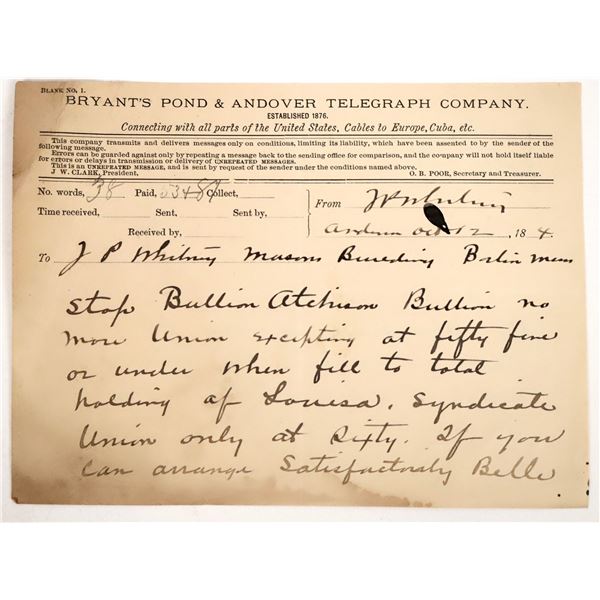 BLANK NO. 1.
BRYANT'S POND & ANDOVER TELEGRAPH COMPANY.
ESTABLISHED 1876.
Connecting with all parts of the United States, Cables to Europe, Cuba, etc.
This company transmits and delivers messages only on conditions, limiting its liability, which have been assented to by the sender of the
following message.
Errors can be guarded against only by repeating a message back to the sending office for comparison, and the company will not hold itself liable
for errors or delays in transmission or delivery of UNREPEATED MESSAGES.
This is an UNREPEATED MESSAGE, and is sent by request of the sender under the conditions named above.
J. W. CLARK, President. O. B. POOR, Secretary and Treasurer.
No. words, 38 Paid, Collect,
Time received, Sent, Sent by
Received by
From J P Whitney
Oct 12 18 4.
To J P Whitney Masons Building Boston Mass
Stop Bullion Atchison Bullion no
more Union excepting at fifty five
or under when fill to total
holding of Louisa. Syndicate
Union only at sixty. If you
can arrange Satisfactorily Belle